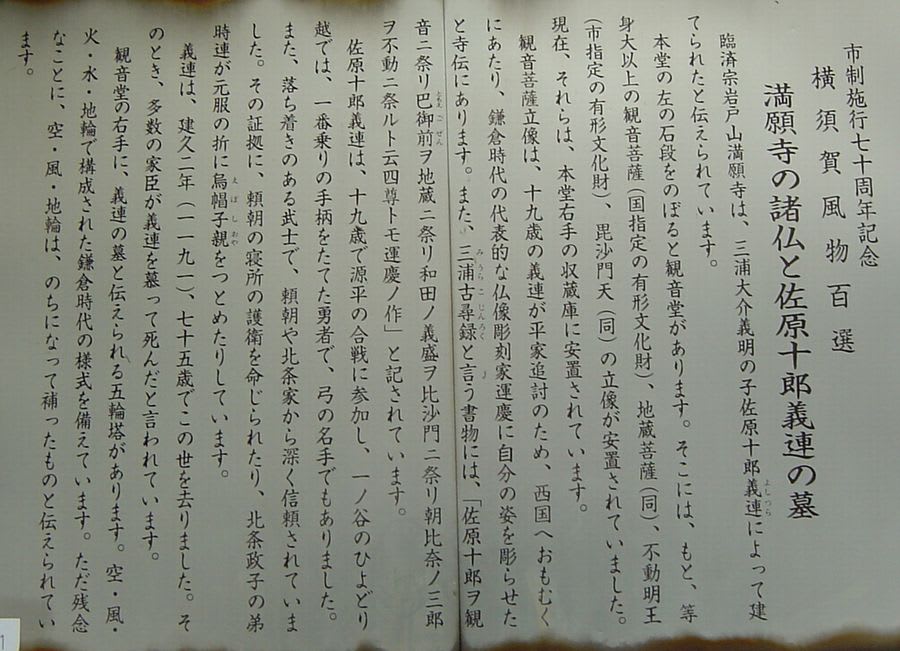 市制施行七十周年記念
横須賀風物百選
満願寺の諸仏と佐原十郎義連の墓
臨済宗岩戸山満願寺は、三浦大介義明の子佐原十郎義連によって建
よしつら
てられたと伝えられています。
本堂の左の石段をのぼると観音堂があります。そこには、もと、等
身大以上の観音菩薩(国指定の有形文化財)、地蔵菩薩(同)、不動明王
(市指定の有形文化財)、毘沙門天(同)の立像が安置されていました。
現在、それらは、本堂右手の収蔵庫に安置されています。
観音菩薩立像は、十九歳の義連が平家追討のため、西国へおもむく
にあたり、鎌倉時代の代表的な仏像彫刻家運慶に自分の姿を彫らせた
と寺伝にあります。また、三浦古尋録と言う書物には、「佐原十郎ヲ観
みうらこじんろく
音ニ祭リ巴御前ヲ地蔵ニ祭リ和田ノ義盛ヲ比沙門ニ祭リ朝比奈ノ三郎
ともえごぜん
ヲ不動ニ祭ルト云四尊トモ運慶ノ作」と記されています。
佐原十郎義連は、十九歳で源平の合戦に参加し、一ノ谷のひよどり
越では、一番乗りの手柄をたてた勇者で、弓の名手でもありました。
また、落ち着きのある武士で、頼朝や北条家から深く信頼されていま
した。その証拠に、頼朝の寝所の護衛を命じられたり、北条政子の弟
時連が元服の折に烏帽子親をつとめたりしています。
えぼしおや
義連は、建久二年(一一九一)、七十五歳でこの世を去りました。そ
のとき、多数の家臣が義連を慕って死んだと言われています。
観音堂の右手に、義連の墓と伝えられる五輪塔があります。空・風・
火・水・地輪で構成された鎌倉時代の様式を備えています。ただ残念
なことに、空・風・地輪は、のちになって補ったものと伝えられてい
ます。